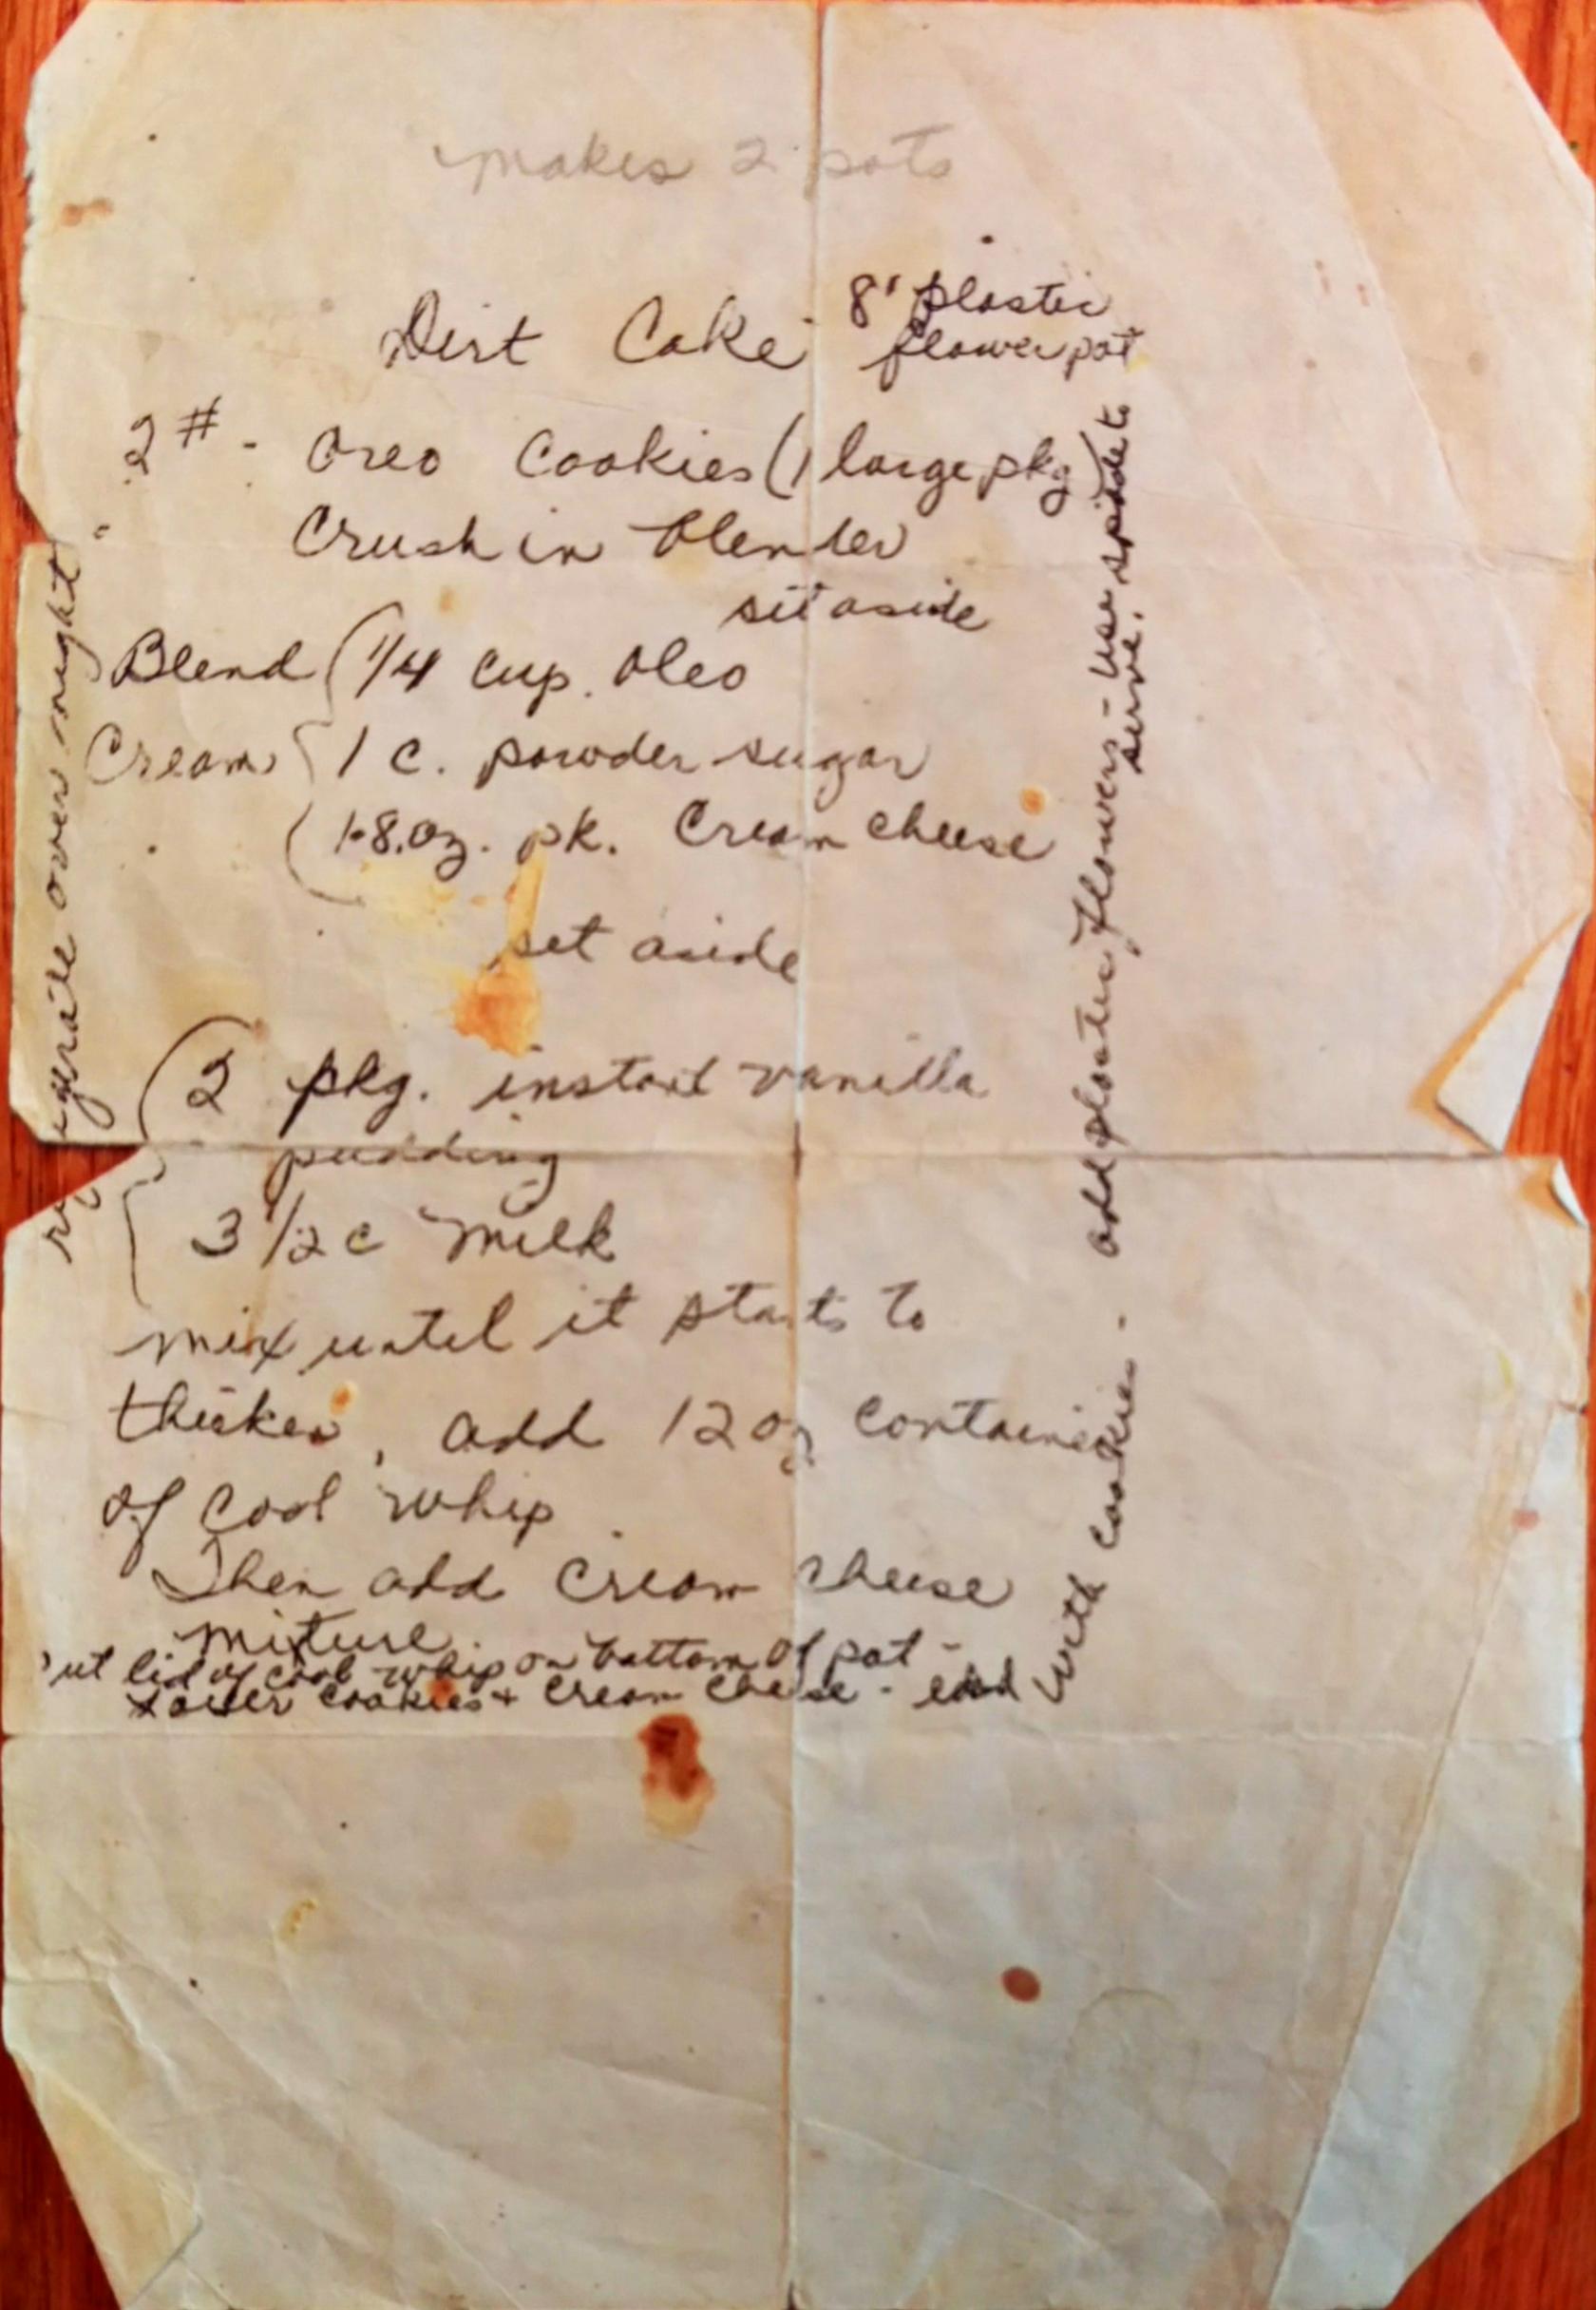 makes 2 pots
8" plastic
Dirt Cake flower pot
2# - Oreo Cookies (1 large pkg)
Crush in blender
set aside
Blend (1/4 cup. Oleo
Cream 1 c. powder sugar
1-8.oz. pk. Cream cheese
set aside
2 pkg. instant vanilla
pudding
3 1/2 c milk
mix until it starts to
thicken, add 12 oz container
of cool whip.
Then add cream cheese
mixture.
Put lid of cool whip on bottom of pot -
Layer cookies + cream cheese - end
with cookies - add plastic flowers - use spade to
serve.
refrigerate over night